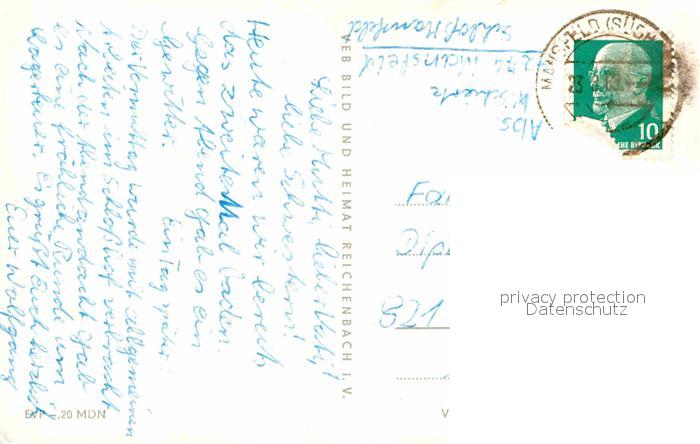 Liebe Mutti, lieber Vati,
liebe Schwestern!
Heute waren wir bereits
das zweite Mal baden.
Gegen Abend gab es ein
Gewitter.
Ein Tag später:
Der Vormittag wurde mit allgemeinen
Arbeiten im Schloßhof verbracht
Nach der Abendandacht gab
es eine fröhliche Runde um
Lagerfeuer. Es grüßt Euch herzlich
Euer Wolfgang
EVP –,20 MDN
VEB BILD UND HEIMAT REICHENBACH I. V.
Abs.
W.
4274 Mansfeld
Schloß Mansfeld
MANSFELD (SÜDH
23
10
CHE REPUBLIK
Fa
Dip
821
V
privacy protection
Datenschutz